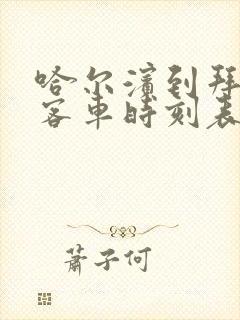 哈尔滨到拜
客车时刻表
萧子何